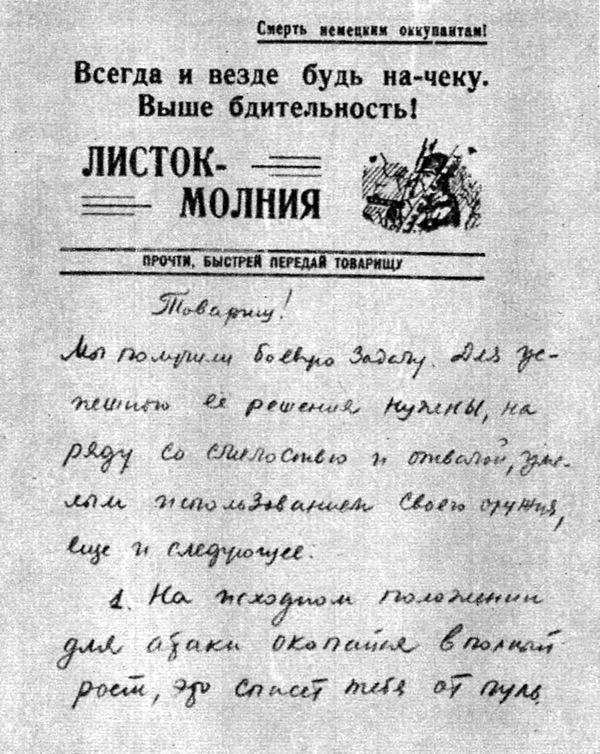 Смерть немецким оккупантам!
Всегда и везде будь на-чеку.
Выше бдительность!
ЛИСТОК-
МОЛНИЯ
ПРОЧТИ, БЫСТРЕЙ ПЕРЕДАЙ ТОВАРИЩУ
Товарищ!
Мы получили боевую задачу. Для ус-
пешного ее решения нужны, на
ряду со смелостью и отвагой, уме-
лым использованием своего оружия,
еще и следующее:
1. На исходном положении
для атаки окопайся в полный
рост, это спасет тебя от пуль